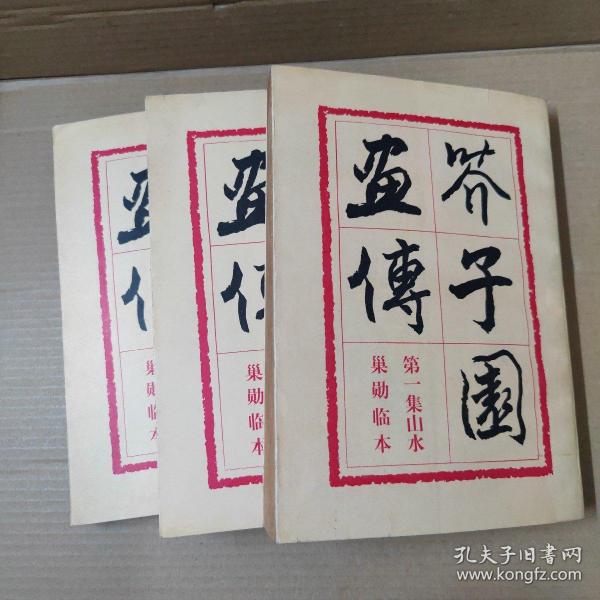 芥子園
畫傳
第一集山水
巢勋临本
畫傳
巢勋临本
畫傳
巢勋临本
孔夫子旧书网
www.kongfz.com